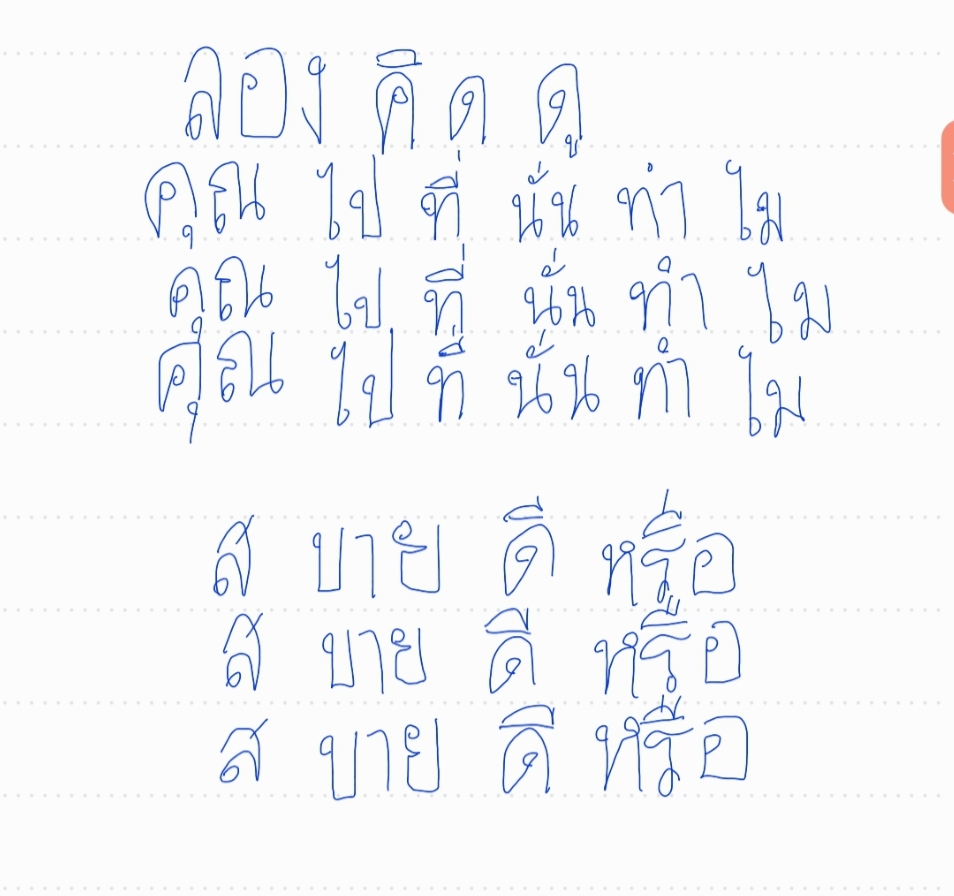 ลอง คิ ด ดู
คุณ ไป ที่ นั่น ทำ ไม
คุณ ไป ที่ นั่น ทำ ไม
คุณ ไป ที่ นั่น ทำ ไม
ส บาย ดี หรือ
ส บาย ดี หรือ
ส บาย ดี หรือ